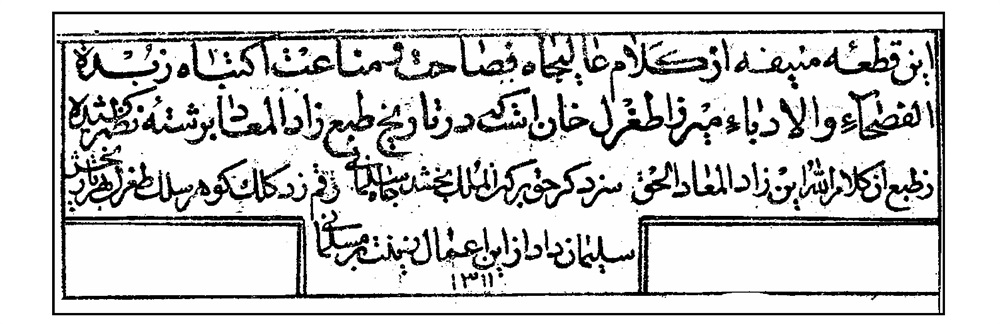 این قطعه منیفه از کلام عالیجاه فصاحت و مناعت اکتناه زبدة
الفصحآء والادباء میرزا طغرل خان است که در تاریخ طبع زاد المعاد برشتهٔ نظم کشیده
ز طبع از کلام الله این زاد المعاد الحق سزد گر حق بر کلک بخشد سلیمانی رقم زد کلک گوهر سلک طغرل بهر تاریخش
سلیمان داد از این اعمال زینت بر مسلمانی
١٣١١